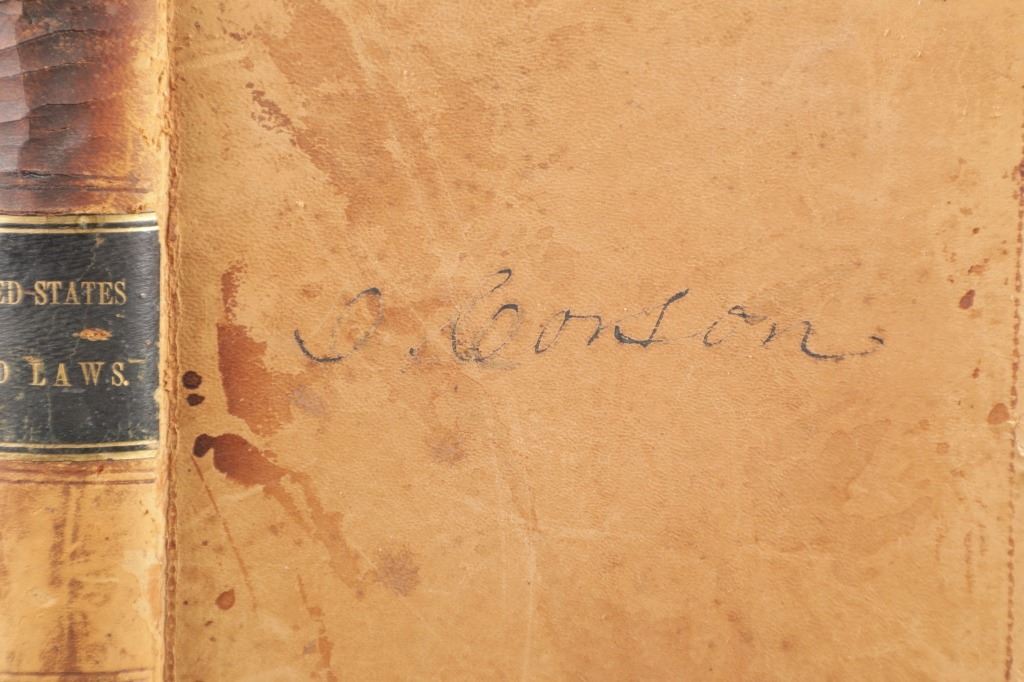 ED STATES
LAWS.
D. Corson